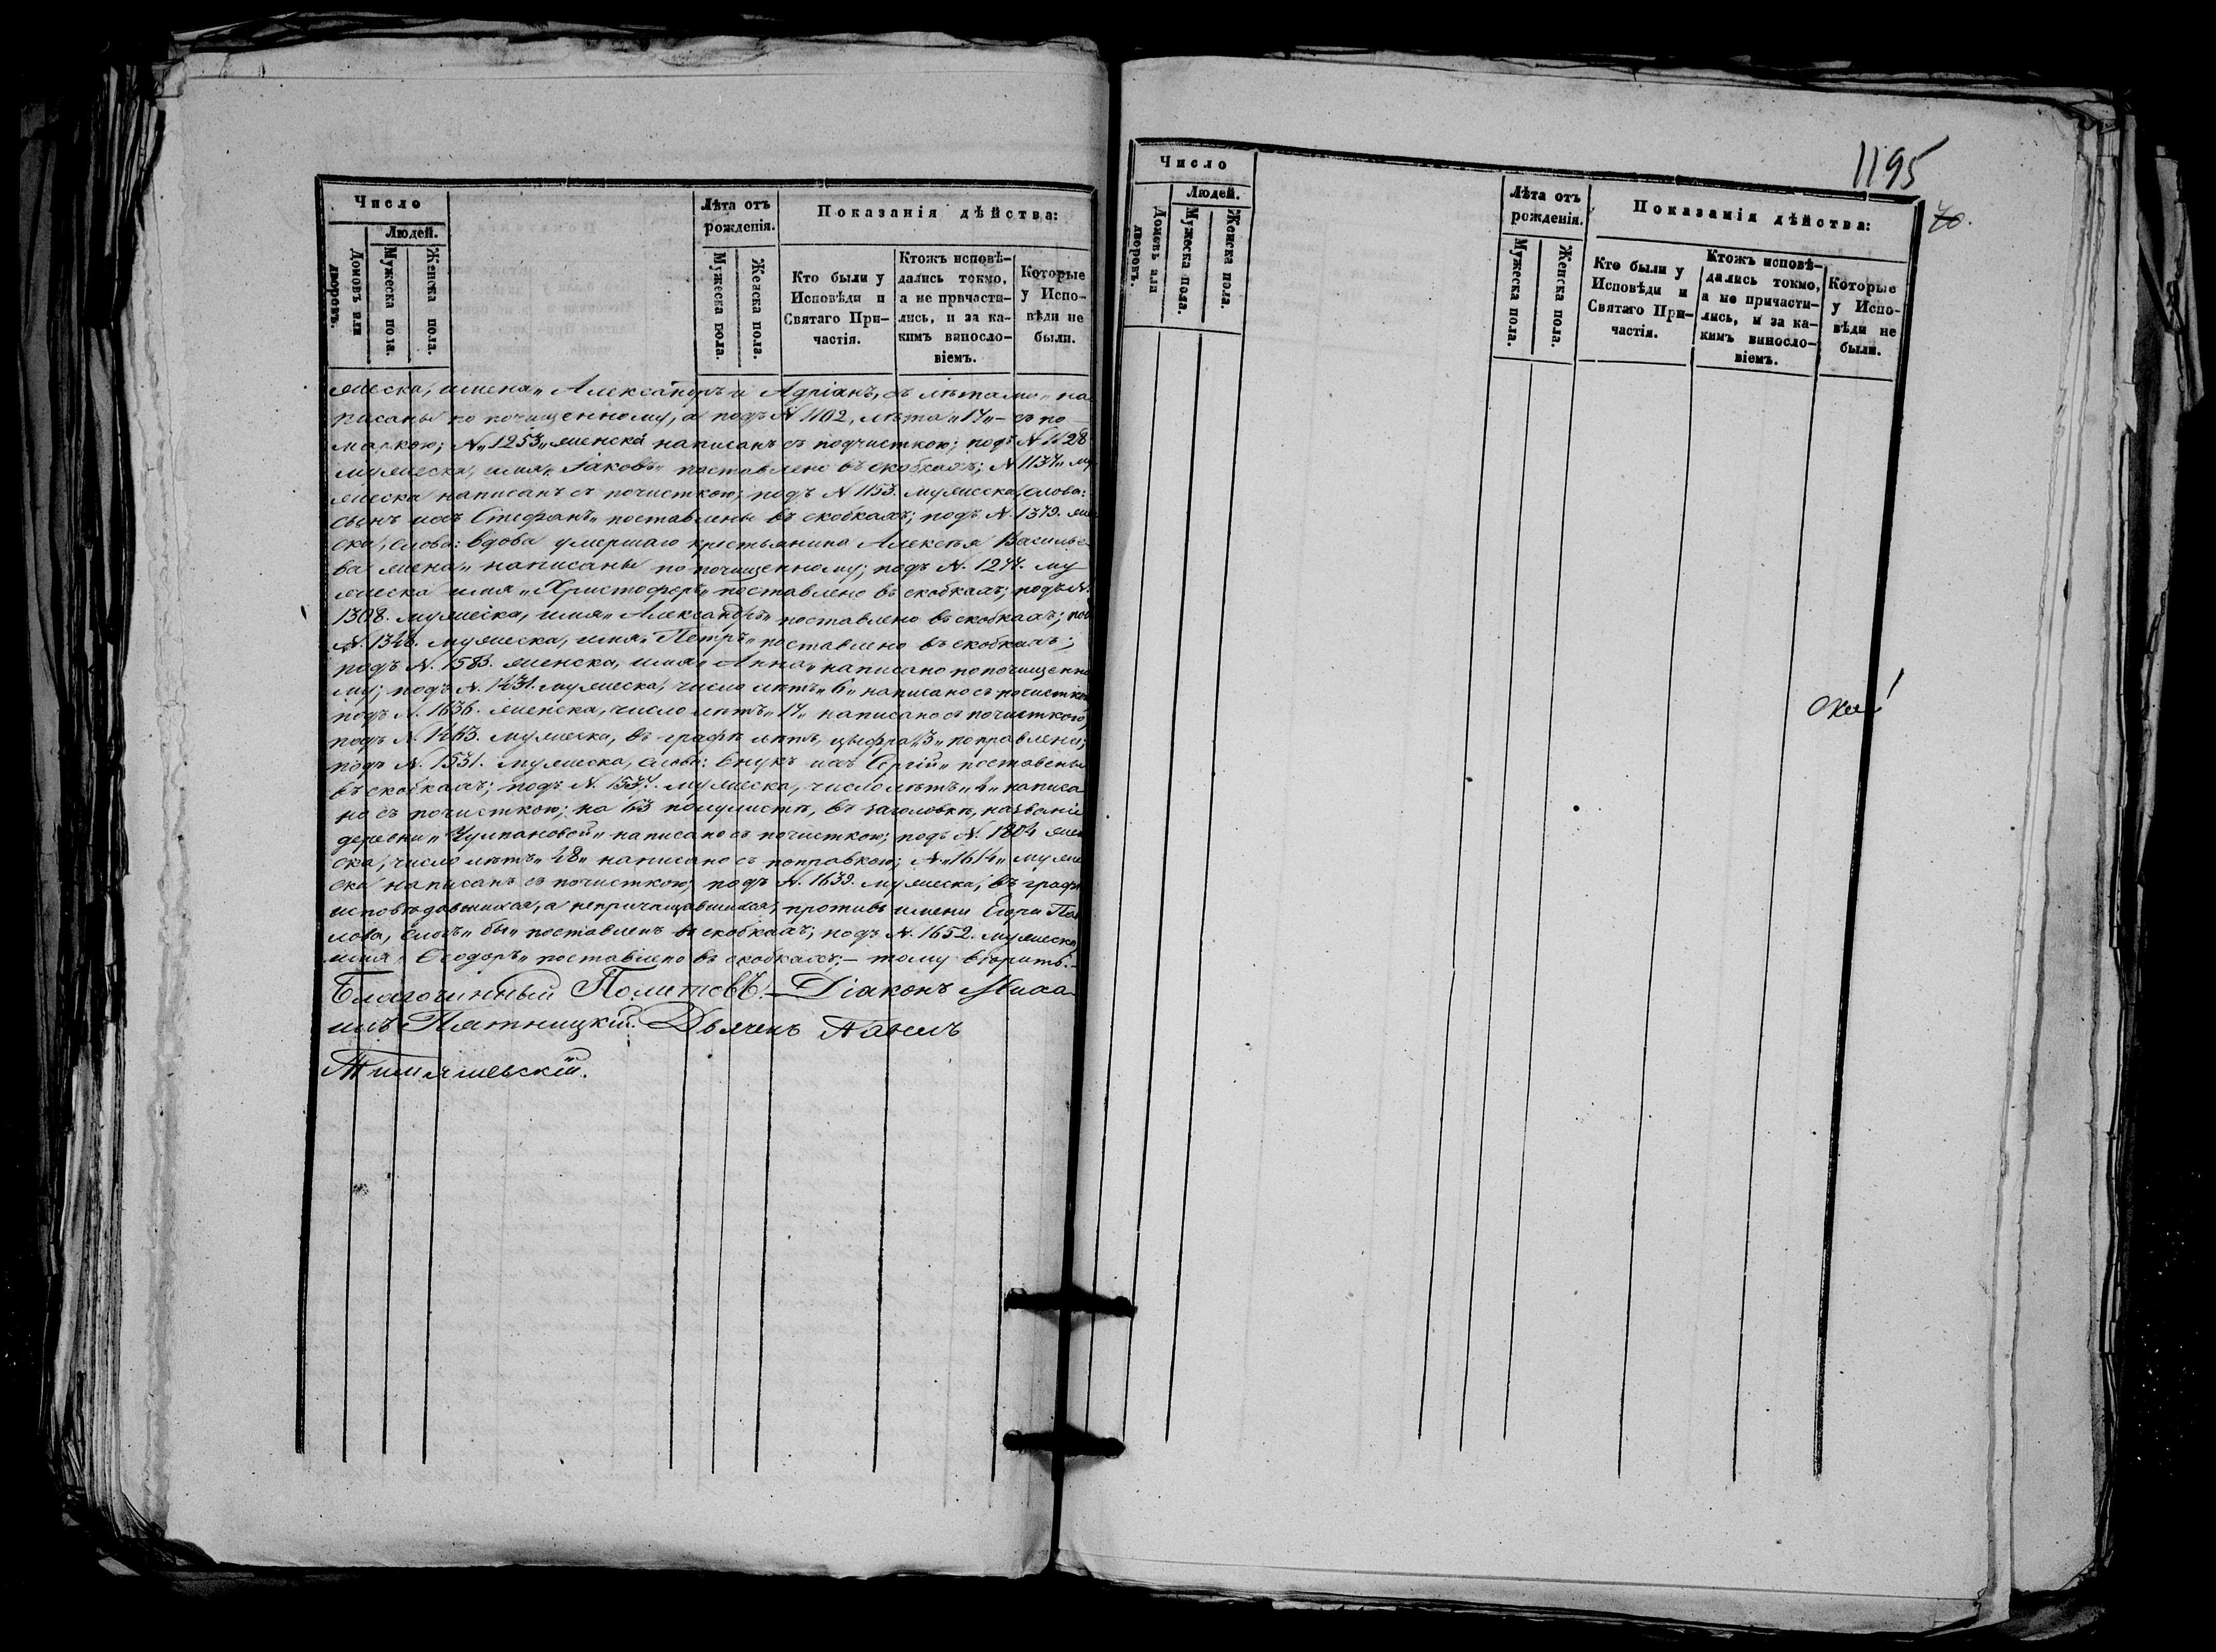 Число
Людей.
Домовъ или дворовъ.
Мужеска пола.
Женска пола.
Лѣта отъ рожденія.
Мужеска пола.
Женска пола.
Показанія дѣйства:
Кто были у Исповѣди и Святаго Причастія.
Ктожъ исповѣдались токмо, а не причастились, и за какимъ винословіемъ.
Которые у Исповѣди не были.
жеска, имена „Александръ и Адріанъ, съ лѣтами„ на
писаны по почищенному, а подъ N 1102, лѣта „17„ – съ по
маркою; N „1253„ женска написанъ съ подчисткою; подъ N 1128
мужеска, имя „Іаковъ„ поставлено въ скобкахъ; N 1137„ му
жеска написанъ съ почисткою; подъ N 1153. мужеска, слова:
сынъ ихъ Стефанъ„ поставлены въ скобкахъ; подъ N. 1379. жен
ска, слова: вдова умершаго крестьянина Алексѣя Василье
ва жена„ написаны по почищенному; подъ N. 1277. му
жеска имя „Христофоръ„ поставлено въ скобкахъ; подъ N.
1308. мужеска, имя „Александръ„ поставлено въ скобкахъ; под
N. 1348. мужеска, имя „Петръ„ поставлено въ скобкахъ;
подъ N. 1583. женска, имя „Анна„ написано по почищенно
му; подъ N. 1431. мужеска, число лѣтъ „6„ написано съ почисткою
подъ N. 1636. женска, число лѣтъ „17„ написано съ почисткою;
подъ N. 1463. мужеска, въ графѣ лѣтъ, цыфра „3„ поправлена;
подъ N. 1531. мужеска, слова: внукъ ихъ Сергій„ поставены
въ скобкахъ; подъ N. 1537. мужеска, число лѣтъ „4„ написа
но съ почисткою; на 63 полулистѣ, въ заголовкѣ, названіе
деревни „Чулпановой„ написано съ почисткою; подъ N. 1804 жен
ска, число лѣтъ „48„ написано съ поправкою; N „1614„ муже
ска написанъ съ почисткою; подъ N. 1639. мужеска, въ графѣ
исповѣдавшихся, а непричащавшихся, противъ имени Егора Пав
лова, слогъ „бы„ поставленъ въ скобкахъ; подъ N. 1652. мужеска
имя „Ѳеодоръ„ поставлено въ скобкахъ; – тому вѣрить. –
Благочинный Политовъ. – Діаконъ Миха
илъ Пятницкій. Дьячекъ Павелъ
Тимяшевскій.
1195
70.
Число
Людей.
Домовъ или дворовъ.
Мужеска пола.
Женска пола.
Лѣта отъ рожденія.
Мужеска пола.
Женска пола.
Показанія дѣйства:
Кто были у Исповѣди и Святаго Причастія.
Ктожъ исповѣдались токмо, а не причастились, и за какимъ винословіемъ.
Которые у Исповѣди не были.